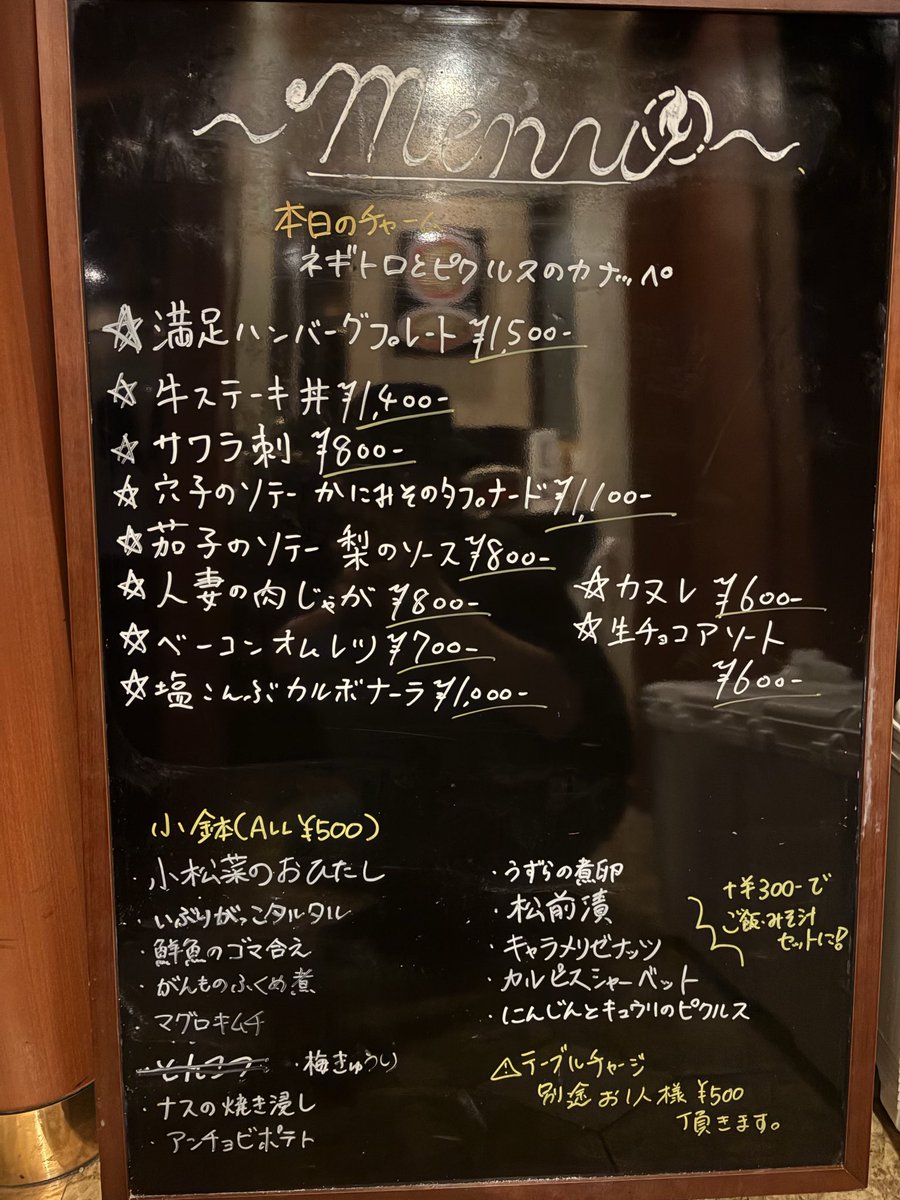 ~Menu~
本日のチャーム
ネギトロとピクルスのカナッペ
☆満足ハンバーグプレート ¥1,500-
☆牛ステーキ丼 ¥1,400-
☆サワラ刺 ¥800-
☆穴子のソテー かにみそのタプナード ¥1,100-
☆茄子のソテー 梨のソース ¥800-
☆人妻の肉じゃが ¥800-
☆ベーコンオムレツ ¥700-
☆塩こんぶカルボナーラ ¥1,000-
☆カヌレ ¥600-
☆生チョコアソート
¥600-
小鉢(ALL ¥500)
・小松菜のおひたし
・いぶりがっこタルタル
・鮮魚のゴマ合え
・がんものふくめ煮
・マグロキムチ
・梅きゅうり
・ナスの焼き浸し
・アンチョビポテト
・うずらの煮卵
・松前漬
・キャラメリゼナッツ
・カルピスシャーベット
・にんじんとキュウリのピクルス
+¥300-で
ご飯・みそ汁
セットに!
⚠テーブルチャージ
別途お1人様 ¥500
頂きます。